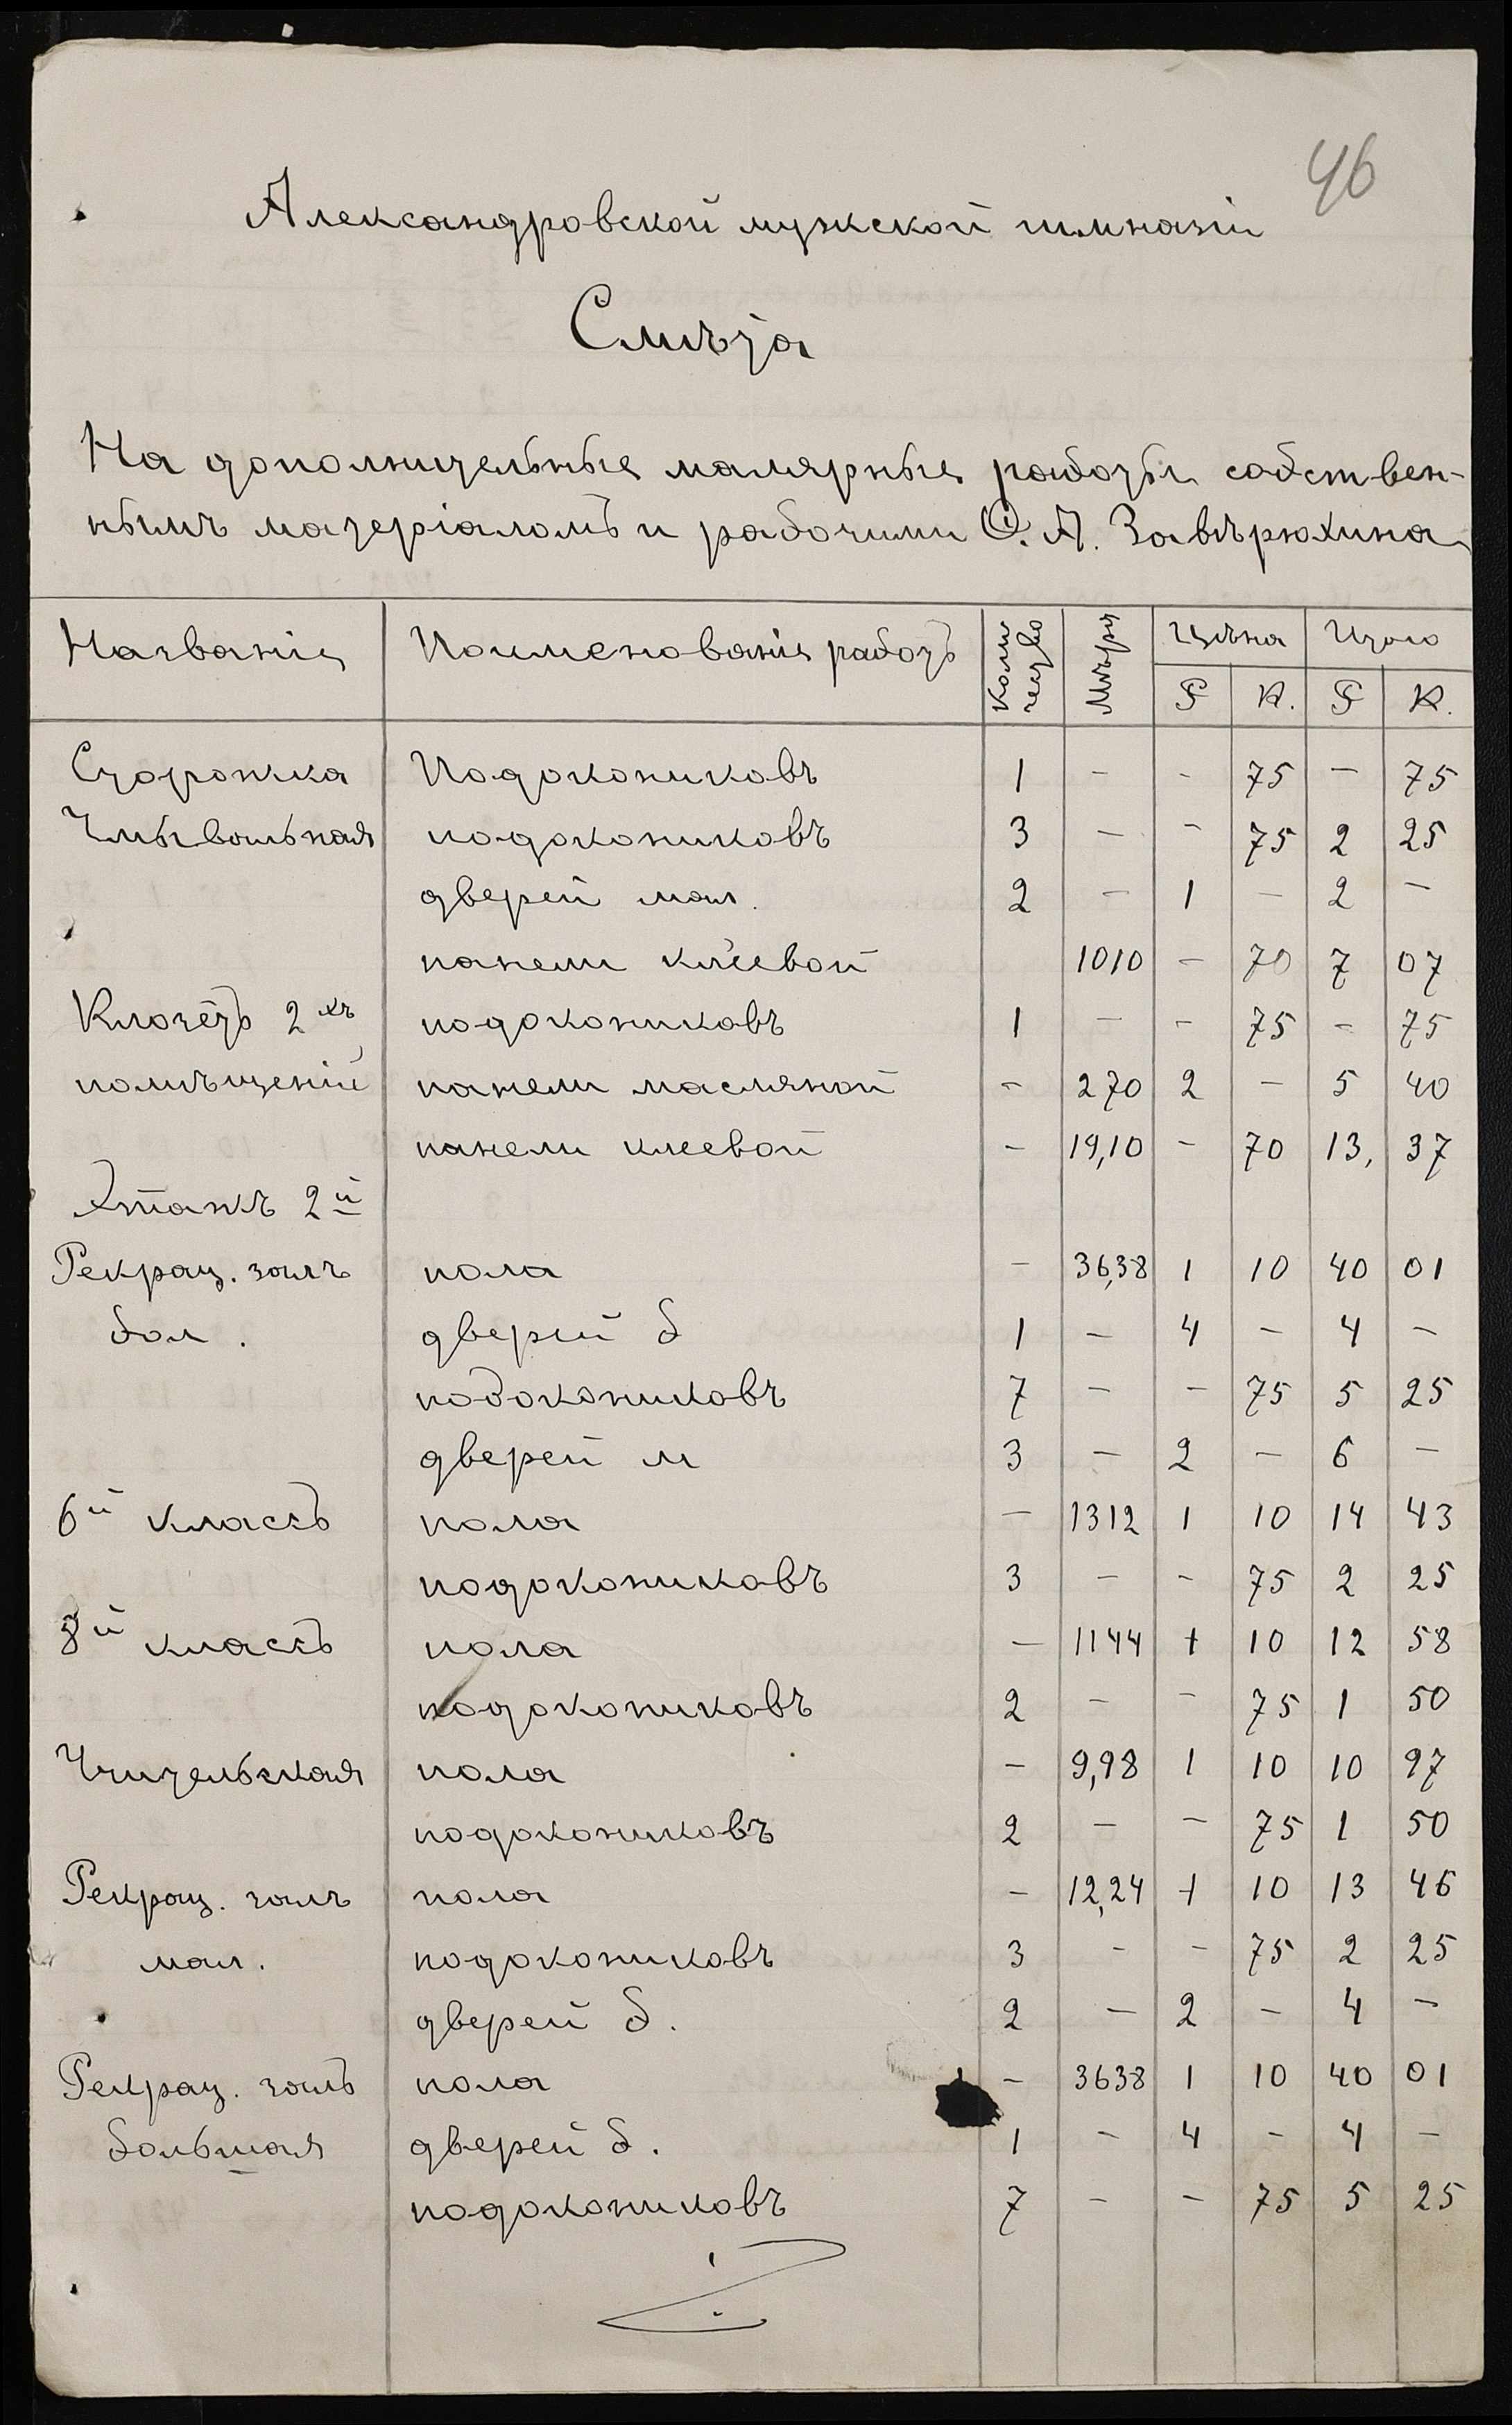 46
Александровской мужской гимназіи
Смѣта
На дополнительные малярные работы собствен-
нымъ матеріаломъ и рабочими Ѳ. А. Завѣрюхина
Названіе Поименованіе работъ Коли чество Мѣра Цѣна Итого
Р К. Р К.
Сторожка Подокониковъ 1 – – 75 – 75
Умывальная подокониковъ 3 – – 75 2 25
дверей мал. 2 – 1 – 2 –
панели клеевой 1010 – 70 7 07
Клозетъ 2хъ подокониковъ 1 – – 75 – 75
помѣщеній панели масляной – 270 2 – 5 40
панели клеевой – 19,10 – 70 13, 37
Этажъ 2й
Рекрац. залъ пола – 36,38 1 10 40 01
бол. дверей б 1 – 4 – 4 –
подокониковъ 7 – – 75 5 25
дверей м 3 – 2 – 6 –
6й класъ пола – 1312 1 10 14 43
подокониковъ 3 – – 75 2 25
8й класъ пола – 1144 1 10 12 58
подокониковъ 2 – – 75 1 50
Учительская пола – 9,98 1 10 10 97
подокониковъ 2 – – 75 1 50
Рекрац. залъ пола – 12,24 1 10 13 46
мал. подокониковъ 3 – – 75 2 25
дверей б. 2 – 2 – 4 –
Рекрац. залъ пола – 3638 1 10 40 01
большая дверей б. 1 – 4 – 4 –
подокониковъ 7 – – 75 5 25